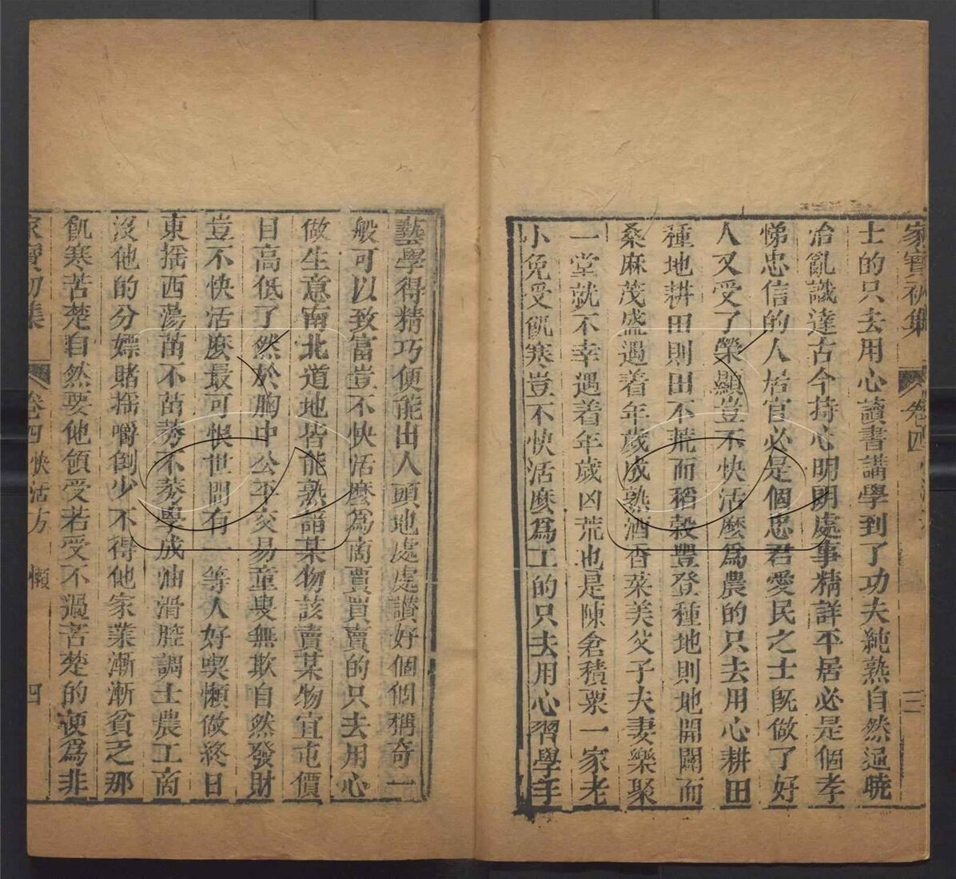 家寶秋集 卷四 三
士的只去用心讀書講學到了功夫純熟自然通曉
治亂識達古今持心明朗處事精詳平居必是個孝
悌忠信的人居官必是個忠君愛民之士既做了好
人又受了榮顯豈不快活麼為農的只去用心耕田
種地耕田則田不荒而稻穀豐登種地則地開闢而
桑麻茂盛過着年歲成熟酒香菜美父子夫妻樂聚
一堂就不幸遇着年歲凶荒也是陳倉積粟一家老
小免受飢寒豈不快活麼為工的只去用心習學手
藝學得精巧便能出人頭地處處讚好個個稱奇一
般可以致富豈不快活麼為商賈買賣的只去用心
做生意南北道地皆能熟諳某物該賣某物宜屯價
目高低了然於胸中公平交易童叟無欺自然發財
豈不快活麼最可恨世間有一等人好喫懶做終日
東搖西蕩苗不苗莠不莠學成油滑腔調士農工商
沒他的分嫖賭搖嚼倒少不得他家業漸漸貧乏那
飢寒苦楚自然要他領受若受不過苦楚的便為非
家寶初集 卷四 快活方 懶 四